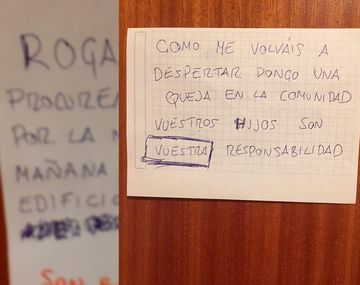 ROGA
PROCURE
POR LA
MAÑANA
EDIFICIO
SON
COMO ME VOLVÁIS A
DESPERTAR PONGO UNA
QUEJA EN LA COMUNIDAD
VUESTROS HIJOS SON
VUESTRA RESPONSABILIDAD